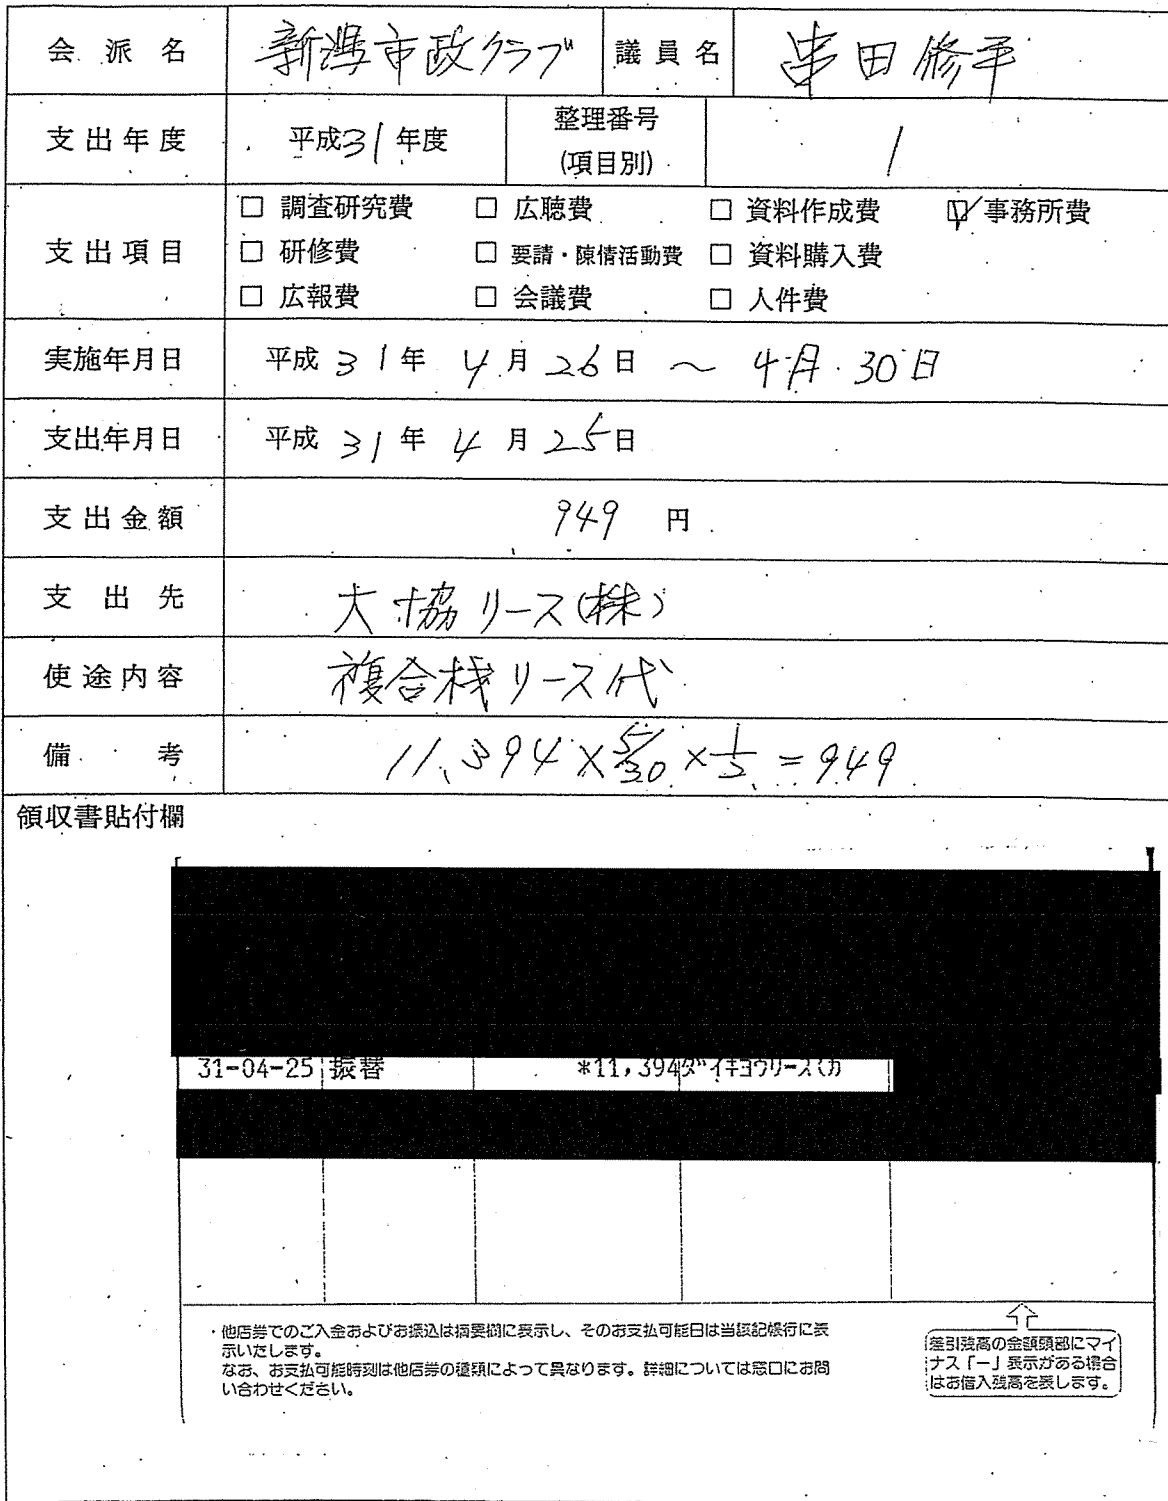 会派名 新潟市政クラブ 議員名 串田修平
支出年度 平成31年度 整理番号(項目別) 1
支出項目
□ 調査研究費 □ 広聴費 □ 資料作成費 ☑ 事務所費
□ 研修費 □ 要請・陳情活動費 □ 資料購入費
□ 広報費 □ 会議費 □ 人件費
実施年月日 平成31年4月26日 ~ 4月30日
支出年月日 平成31年4月25日
支出金額 949 円
支出先 大協リース(株)
使途内容 複合機リース代
備考 11,394×5/30×1/2=949
領収書貼付欄
31-04-25 振替 *11,394 ダイキヨウリース(カ
・他店券でのご入金およびお振込は摘要欄に表示し、そのお支払可能日は当該記帳行に表
示いたします。
なお、お支払可能時刻は他店券の種類によって異なります。詳細については窓口にお問
い合わせください。
差引残高の金額頭部にマイ
ナス「-」表示がある場合
はお借入残高を表します。